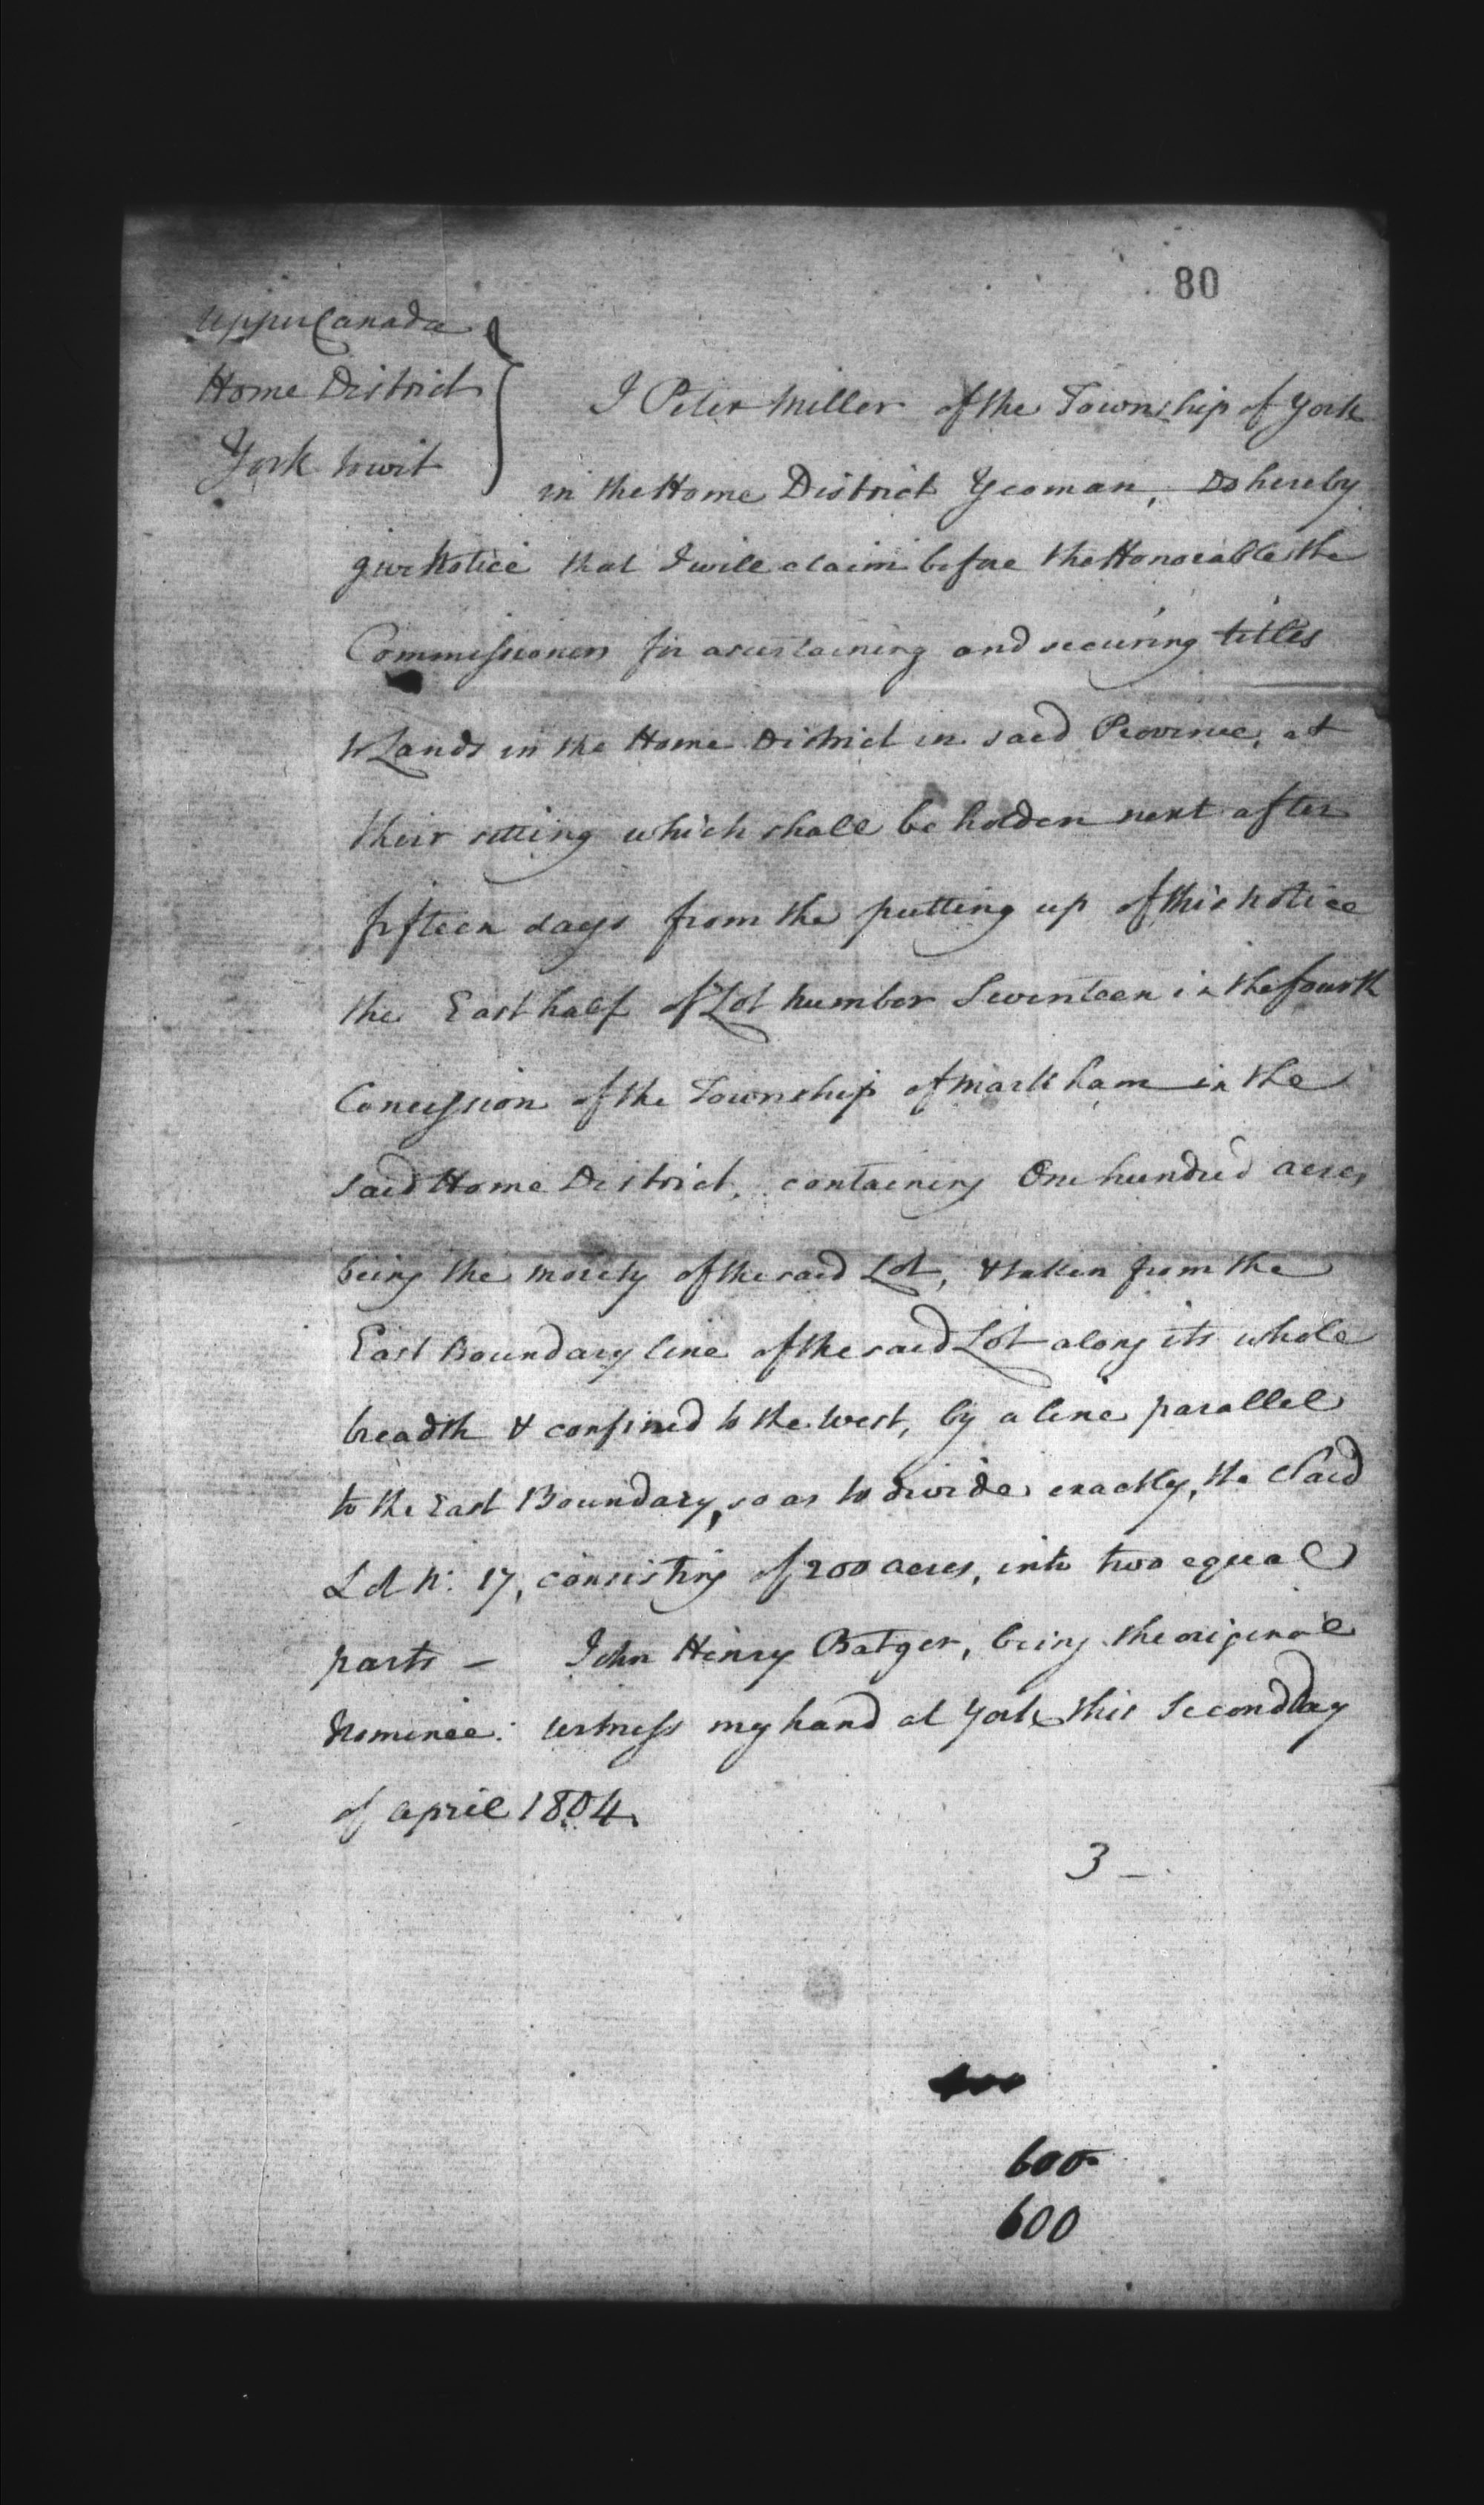 80
Upper Canada
Home District
York towit
I Peter Miller of the Township of York
in the Home District Yeoman, Do hereby
give Notice that I will claim before the Honorable the
Commissioners for ascertaining and securing titles
to Lands in the Home District in said Province, at
their sitting which shall be holden next after
fifteen days from the putting up of this Notice
the East half of Lot Number Seventeen in the fourth
Concession of the Township of Markham in the
said Home District, containing One hundred acres,
being the moiety of the said Lot, & taken from the
East Boundary line of the said Lot along its whole
breadth & confined to the West, by a line parallel
to the East Boundary, so as to divide exactly, the Said
Lot No. 17, consisting of 200 acres, into two equal
parts — John Henry Batger, being the original
Nominee: witness my hand at York this Second Day
of April 1804.
3 —
600
600